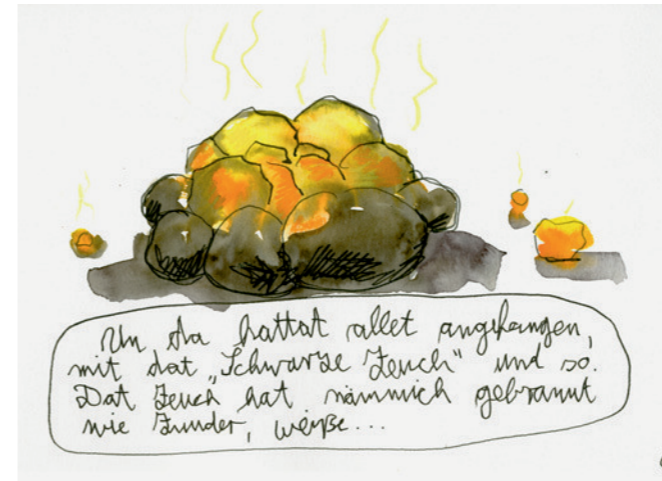 Un da hattat allet angefangen,
mit dat „Schwarze Zeuch“ und so.
Dat Zeuch hat nämmich gebrannt
wie Zunder, weiße...